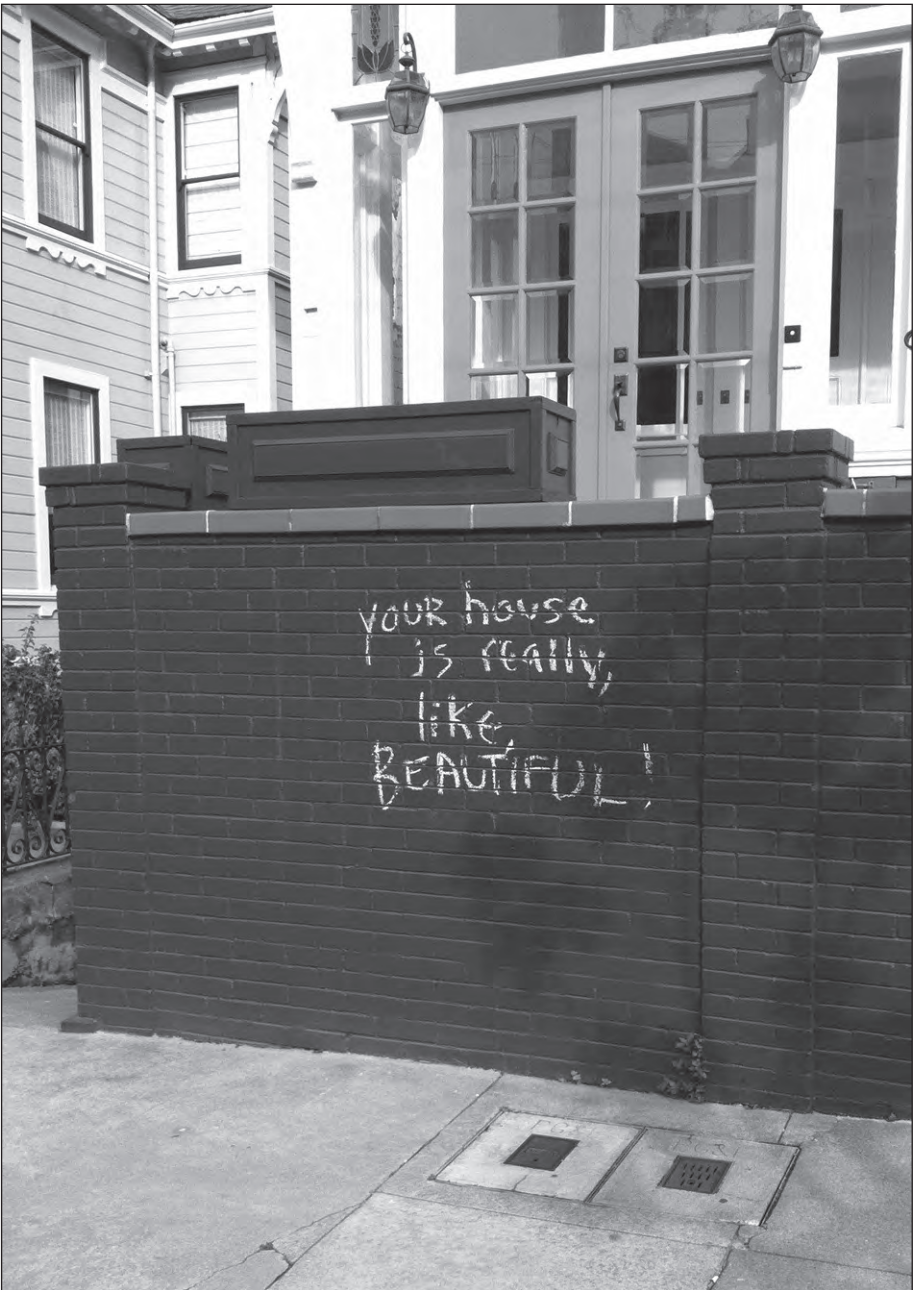 your house
is really,
like,
BEAUTIFUL!